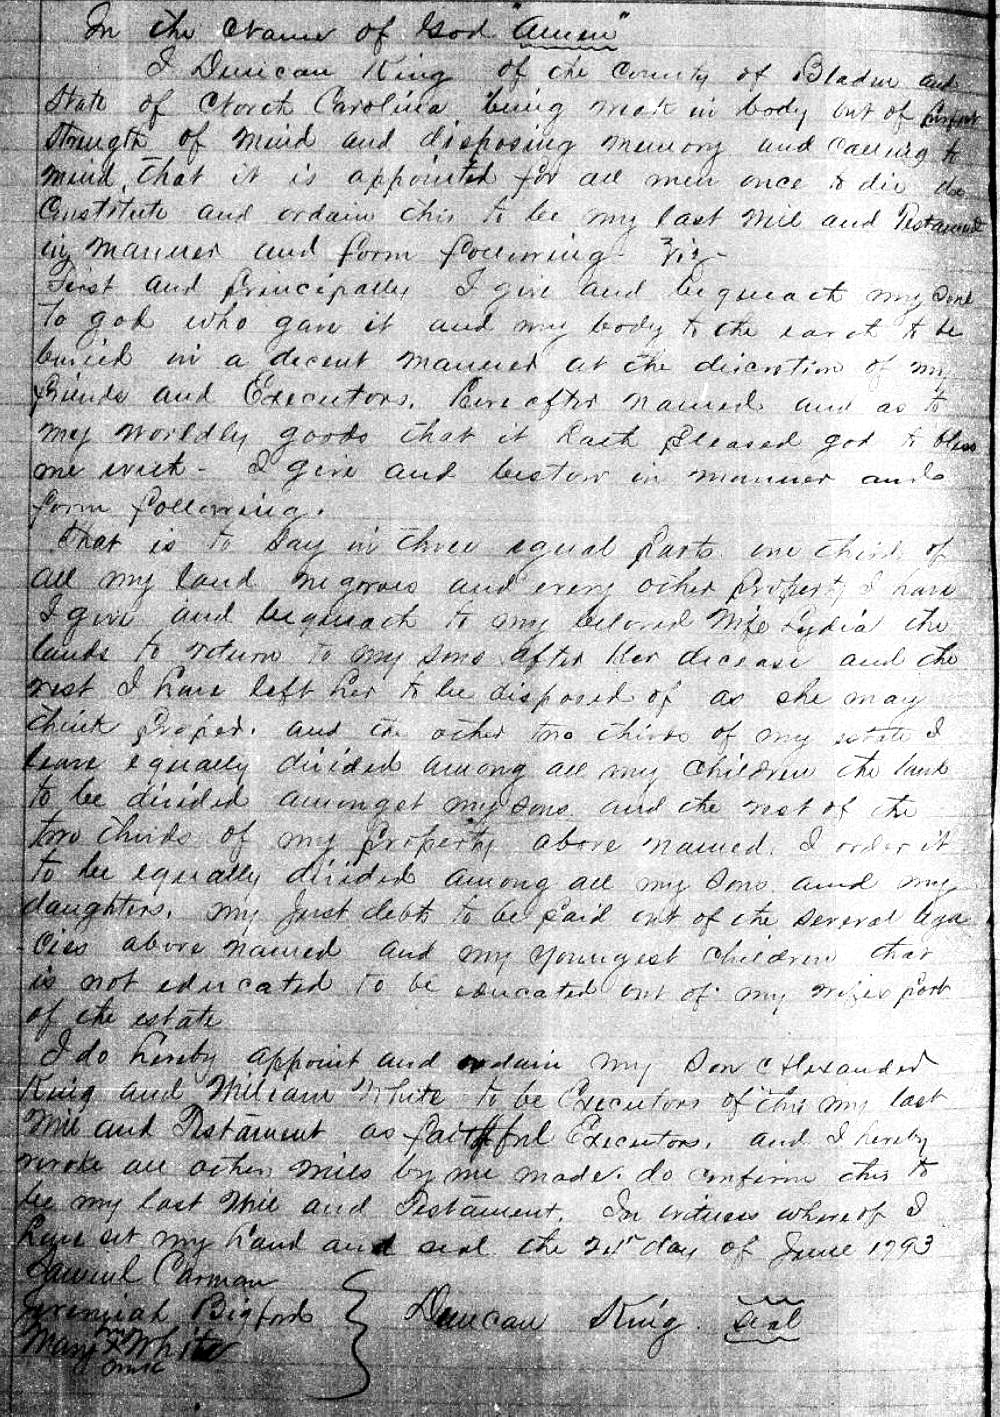 In the Name of God "Amen"
I Duncan King of the County of Bladen and
State of North Carolina being weak in body but of perfect
strength of mind and disposing memory and caling to
mind, that it is appointed for all men once to die do
Constitute and ordain this to be my last Will and Testament
in manner and form following - Viz -
First and principally I give and bequeath my sole
to god who gave it and my body to the earth to be
buried in a decent manner at the discretion of my
friends and Executors, hereafter named and as to
my worldly goods that it hath pleased god to bless
me with - I give and bestow in manner and
form following.
That is to say in three equal parts one third of
all my land negroes and every other property I have
I give and bequeath to my beloved Wife Lydia the
lands to return to my sons after Her decease and the
rest I have left her to be disposed of as she may
think proper. and the other two thirds of my estate I
leave equally divided among all my children the land
to be divided amongst my sons and the rest of the
two thirds of my property above named. I order it
to be equally divided among all my sons and my
daughters. my just debts to be paid out of the several lega
-cies above named and my youngest children that
is not educated to be educated out of my wifes part
of the estate
I do hereby appoint and ordain my son Alexander
King and William White to be Executors of this my last
Will and Testament as faithful Executors. and I hereby
revoke all other wills by me made. do confirm this to
be my last Will and Testament. In witness whereof I
have set my hand and seal the 21st day of June 1793
Samuel Carman
Jeremiah Bigford } Duncan King. seal
Mary X White
mark